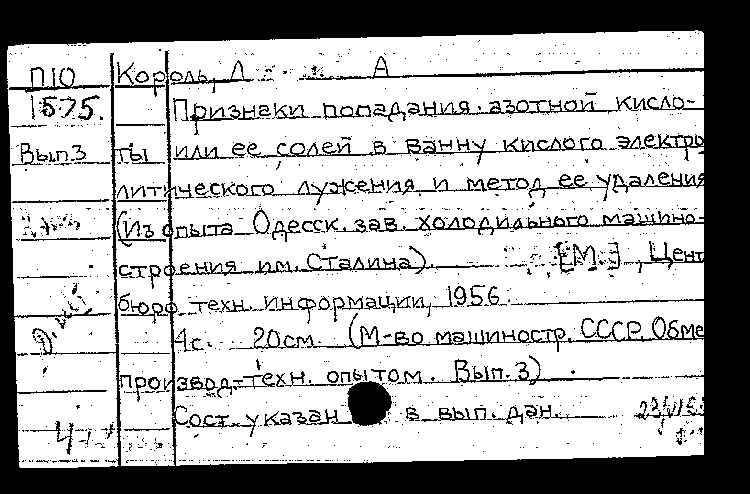 П10 Король, Л А
1575. Признаки попадания азотной кисло-
Вып.3 ты или ее солей в ванну кислого электро
литического лужения и метод ее удаления
(Из опыта Одесск. зав. холодильного машино-
строения им. Сталина). [М.], Цент
бюро техн. информации, 1956.
4с. 20см. (М-во машиностр. СССР. Обме
производ.-техн. опытом. Вып.3)
Сост. указан в вып. дан.